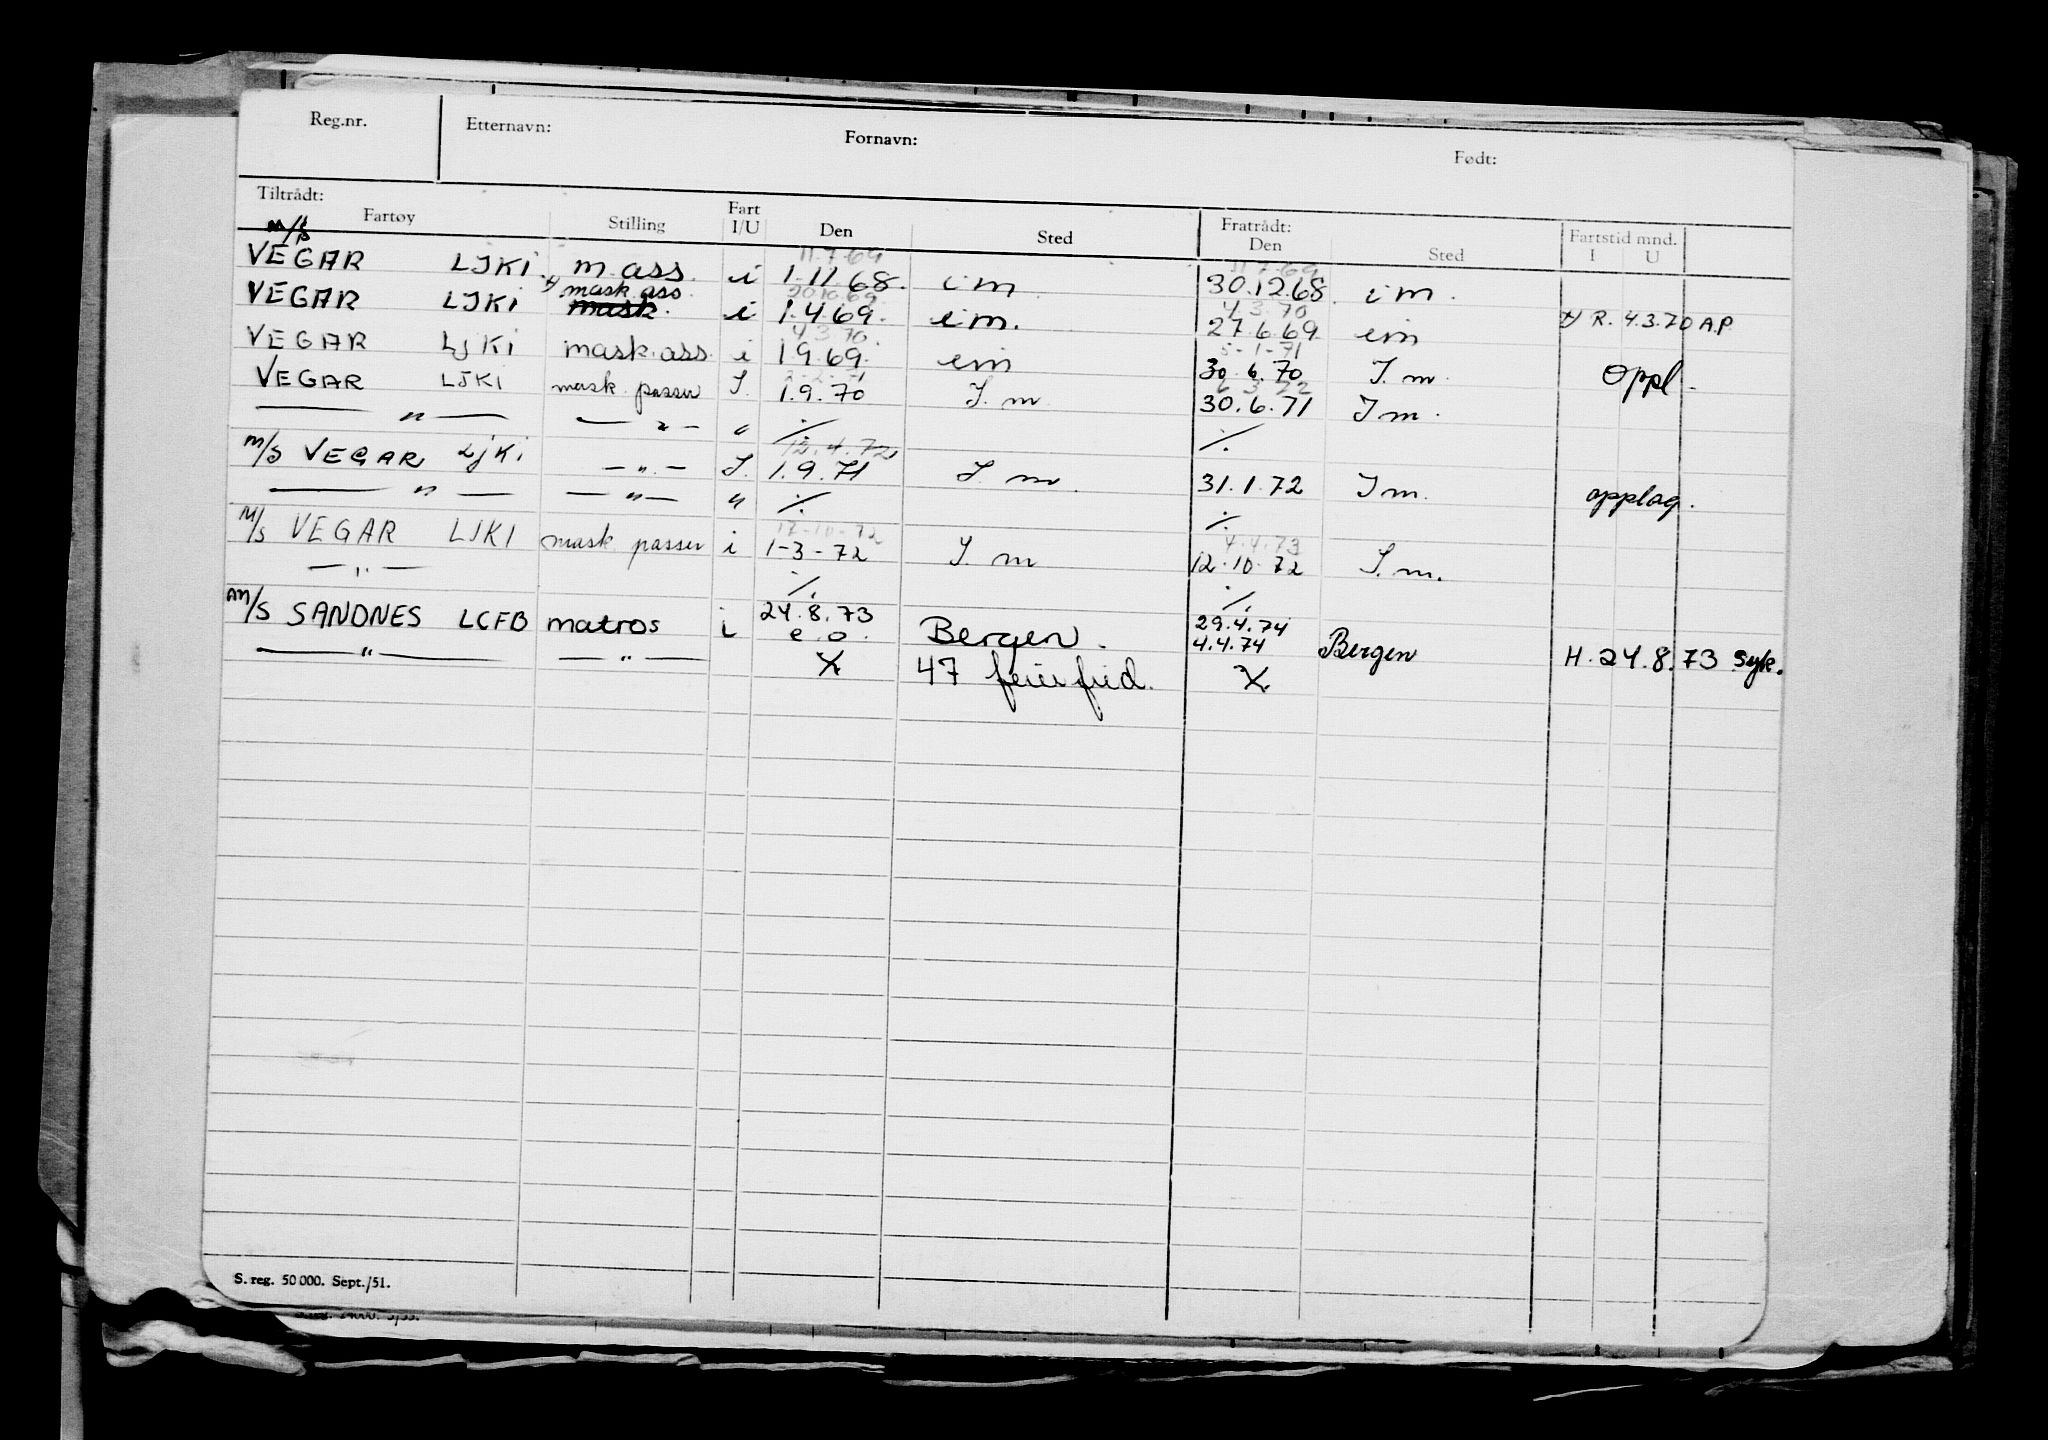 Reg.nr. Etternavn: Fornavn: Født:
Tiltrådt: Fratrådt:
Fartøy Stilling Fart I/U Den Sted Den Sted Fartstid mnd. I U
M/S
11.7.69 11.7.69
VEGAR LJKI m.ass. i 1.11.68. i m 30.12.68. i m.
x) mask.ass. 20.10.69 4.3.70
VEGAR LJKI mask. i 1.4.69. i m. 27.6.69. i m x) R. 4.3.70 A.P.
4.3.70. 5-1-71
VEGAR LJKI mask.ass. i 1.9.69. i m 30.6.70 I. m. Oppl.
VEGAR LJKI mask. passer I. 1.9.70 I. m 30.6.71 I m.
— " — — " — " ./. ./.
12.4.72.
M/S VEGAR LJKI — " — I. 1.9.71 I m. 31.1.72 I m. opplag.
— " — — " — " ./. ./.
17-10-72 4.4.73
M/S VEGAR LJKI mask passer i 1-3-72 I. m 12.10.72 I. m.
— " — ./. ./.
AM/S SANDNES LCFB matros i 24.8.73 Bergen. 29.4.74
e.o. 4.4.74 Bergen H. 24.8.73 syk.
— " — — " — 47 feriefrid.
S. reg. 50 000. Sept./51.